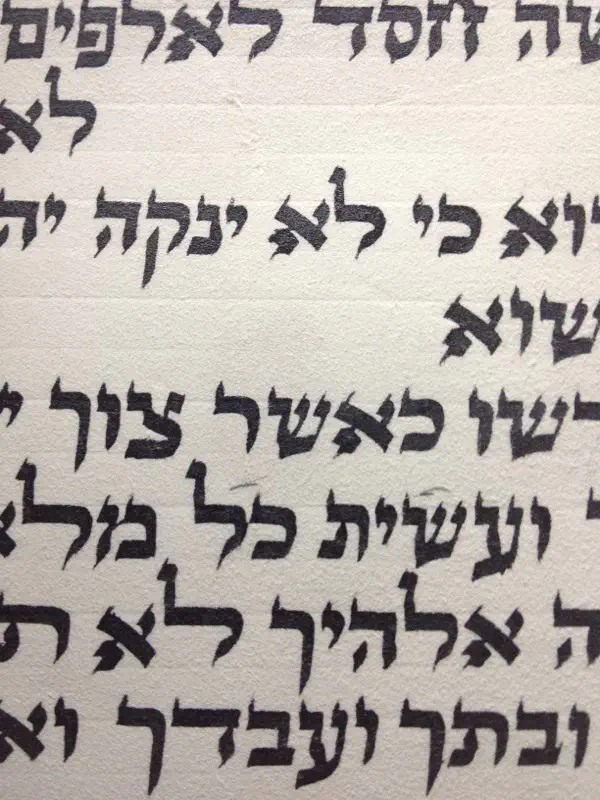 שה חסד לאלפים
לא
וא כי לא ינקה יה
שוא
דשו כאשר צוך י
ועשית כל מלא
ה אלהיך לא ת
ובתך ועבדך וא